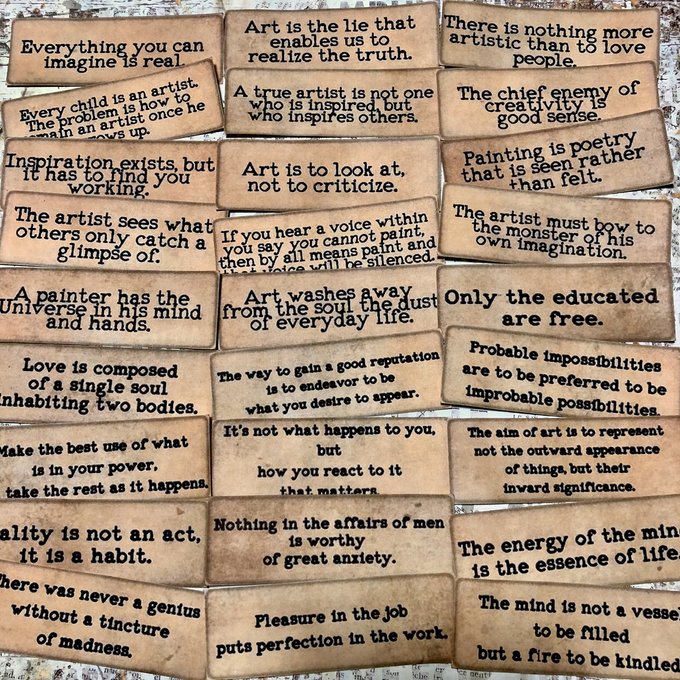 Everything you can
imagine is real.
Art is the lie that
enables us to
realize the truth.
There is nothing more
artistic than to love
people.
Every child is an artist.
The problem is how to
main an artist once he
ows up.
A true artist is not one
who is inspired, but
who inspires others.
The chief enemy of
creativity is
good sense.
Inspiration exists, but
it has to find you
working.
Art is to look at,
not to criticize.
Painting is poetry
that is seen rather
than felt.
The artist sees what
others only catch a
glimpse of.
If you hear a voice within
you say you cannot paint,
then by all means paint and
that voice will be silenced.
The artist must bow to
the monster of his
own imagination.
A painter has the
Universe in his mind
and hands.
Art washes away
from the soul the dust
of everyday life.
Only the educated
are free.
Love is composed
of a single soul
inhabiting two bodies.
The way to gain a good reputation
is to endeavor to be
what you desire to appear.
Probable impossibilities
are to be preferred to be
improbable possibilities.
Make the best use of what
is in your power,
take the rest as it happens.
It's not what happens to you,
but
how you react to it
that matters
The aim of art is to represent
not the outward appearance
of things, but their
inward significance.
ality is not an act,
it is a habit.
Nothing in the affairs of men
is worthy
of great anxiety.
The energy of the min
is the essence of life.
here was never a genius
without a tincture
of madness.
Pleasure in the job
puts perfection in the work.
The mind is not a vesse
to be filled
but a fire to be kindled